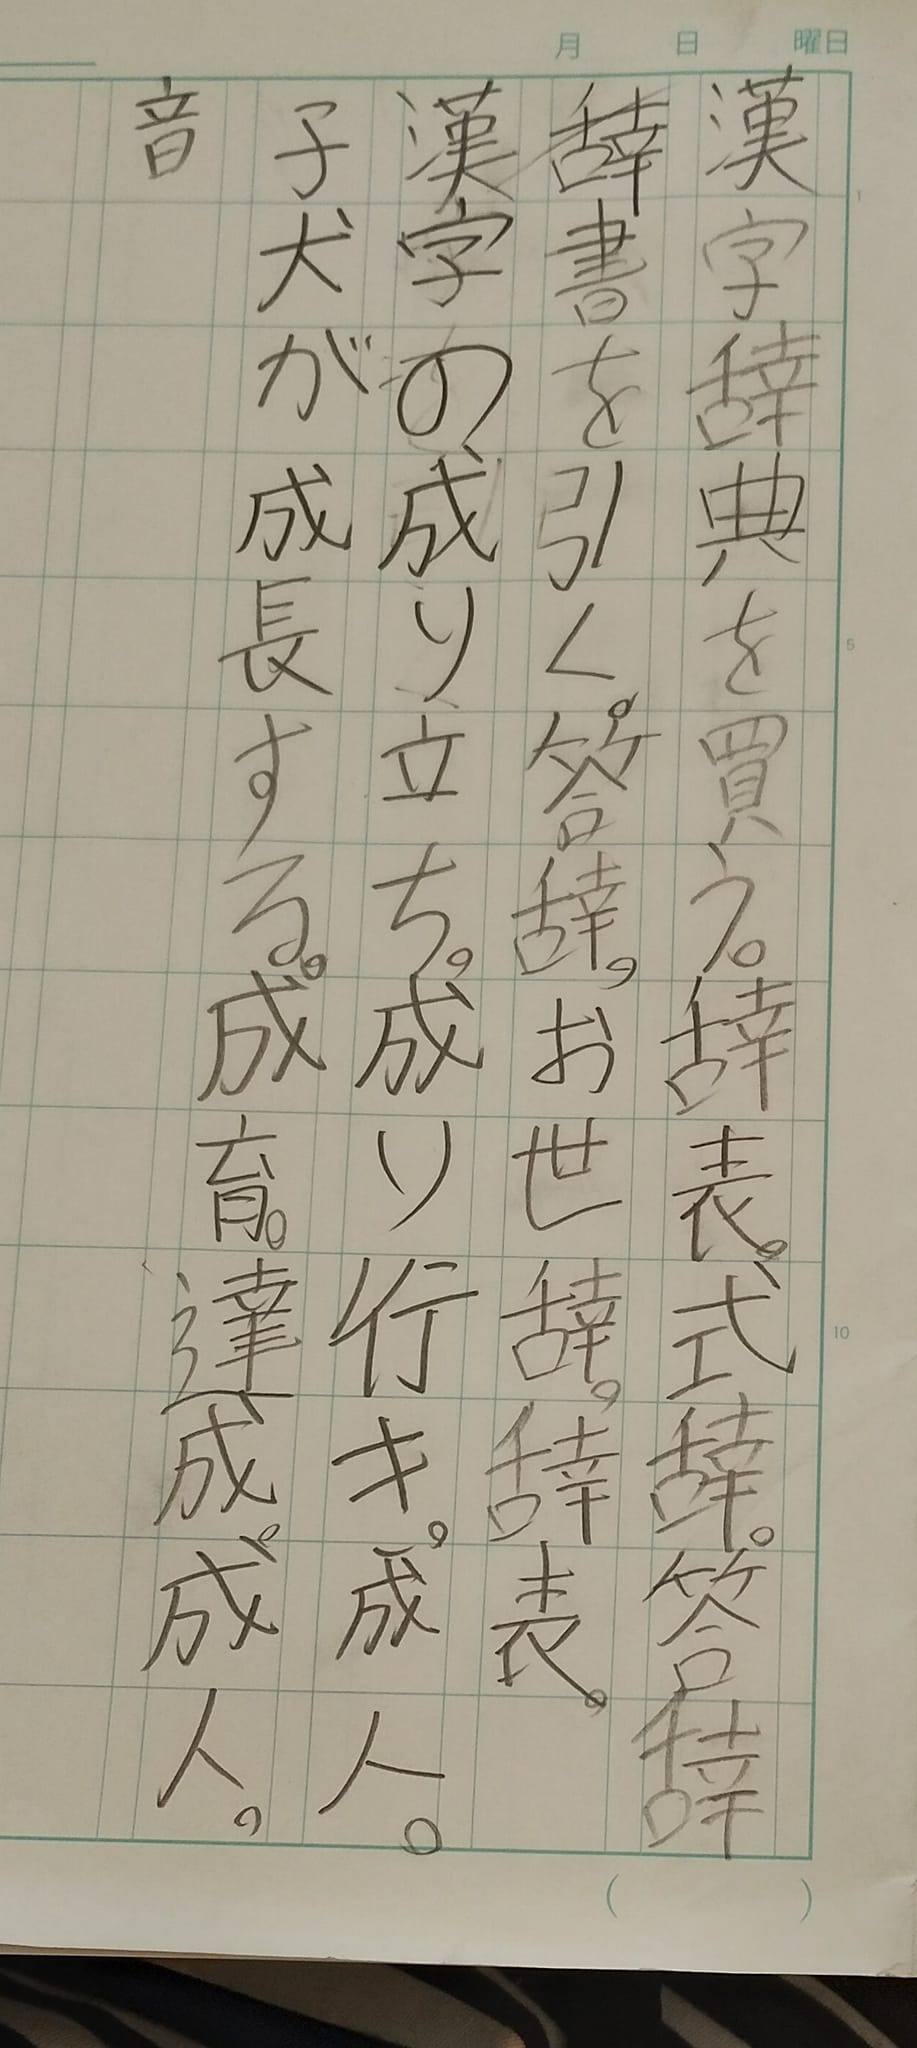 月 日 曜日
漢字辞典を買う。辞表。式辞。答辞
辞書を引く。答辞。お世辞。辞表。
漢字の成り立ち。成り行キ。成人。
子犬が成長する。成育。達成。成人。
音
1
5
10
( )